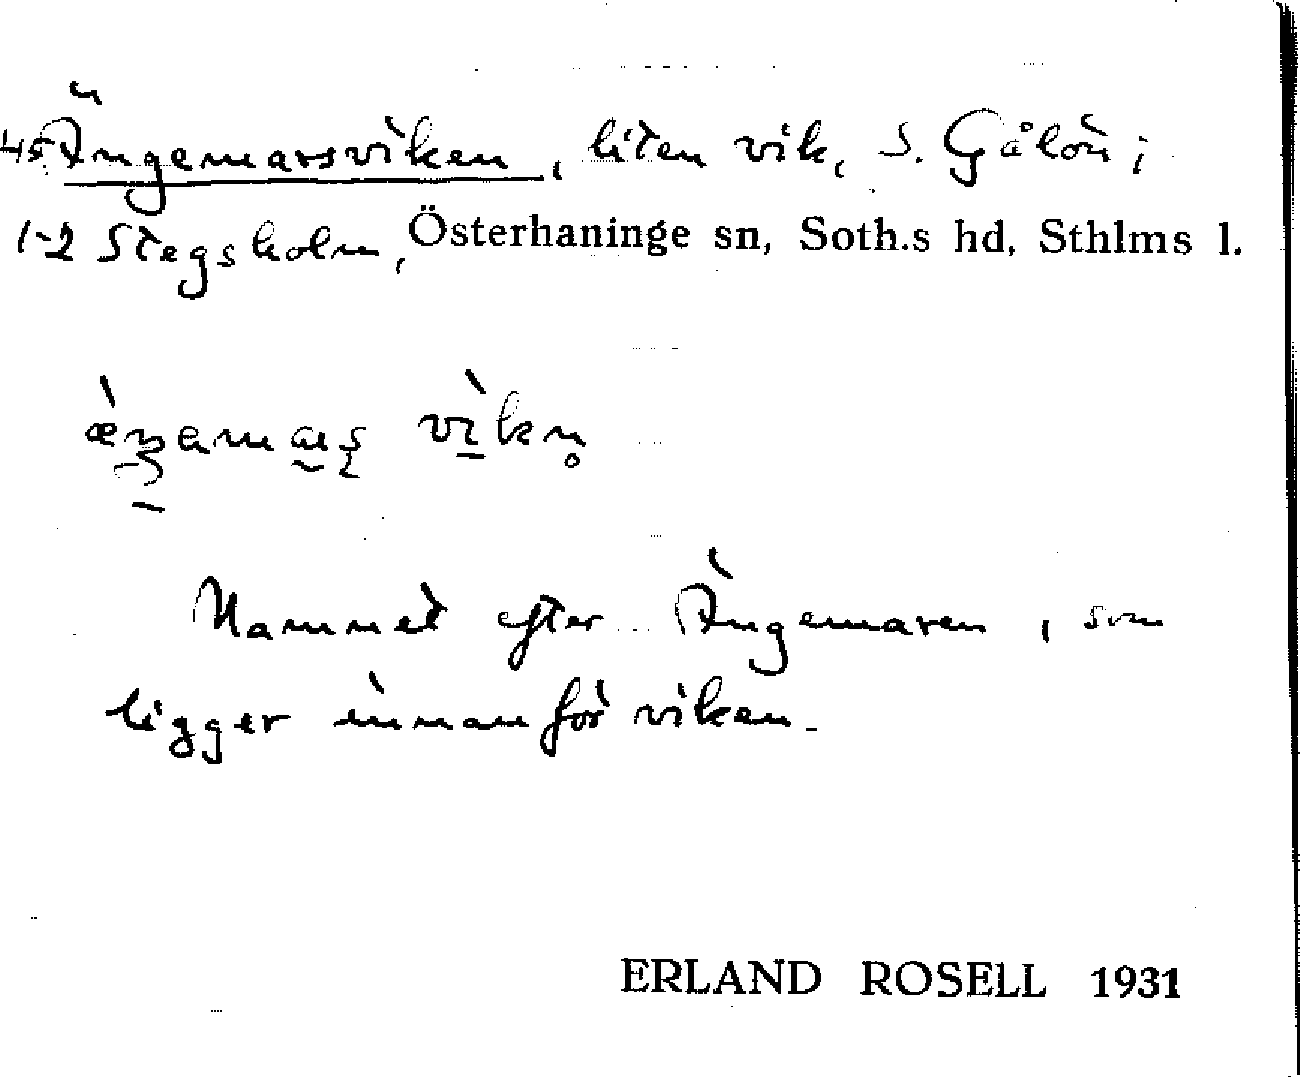 45. Ängemarsviken, liten vik, S. Gålön;
1-2 Stegsholm, Österhaninge sn, Soth.s hd, Sthlms l.
Namnet efter Ängemaren, som
ligger innanför viken.
ERLAND ROSELL 1931